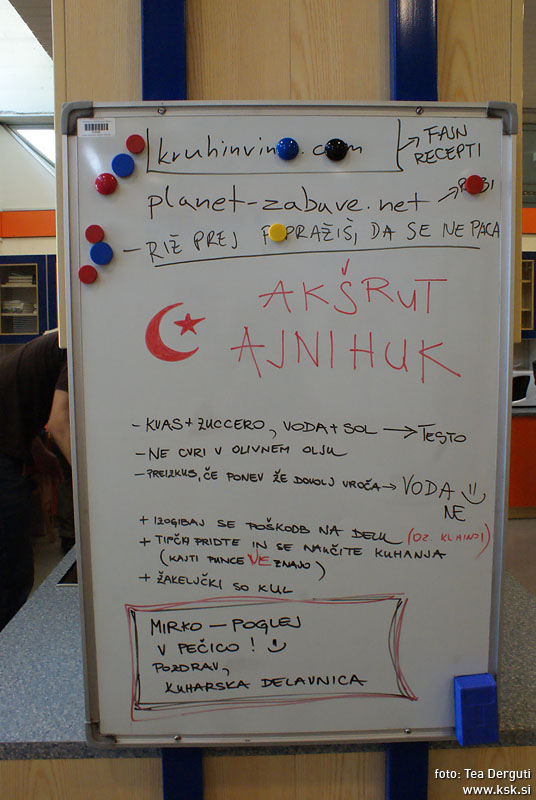 kruhinvino.com
→ FAJN
RECEPTI
planet-zabave.net →
- RIŽ PREJ POPRAŽIŠ, DA SE NE PACA
AKŠRUT
AJNIHUK
- KVAS + ZUCCERO, VODA + SOL → TESTO
- NE CVRI V OLIVNEM OLJU
- PREIZKUS, ČE PONEV ŽE DOVOLJ VROČA → VODA
NE
+ IZOGIBAJ SE POŠKODB NA DELU (OZ. KLAINDI)
+ TIPČKI PRIDTE IN SE NAUČITE KUHANJA
(KAJTI PUNCE VE ZNAJO)
+ ŽAKELJČKI SO KUL
MIRKO - POGLEJ
V PEČICO!
POZDRAV,
KUHARSKA DELAVNICA
foto: Tea Derguti
www.ksk.si